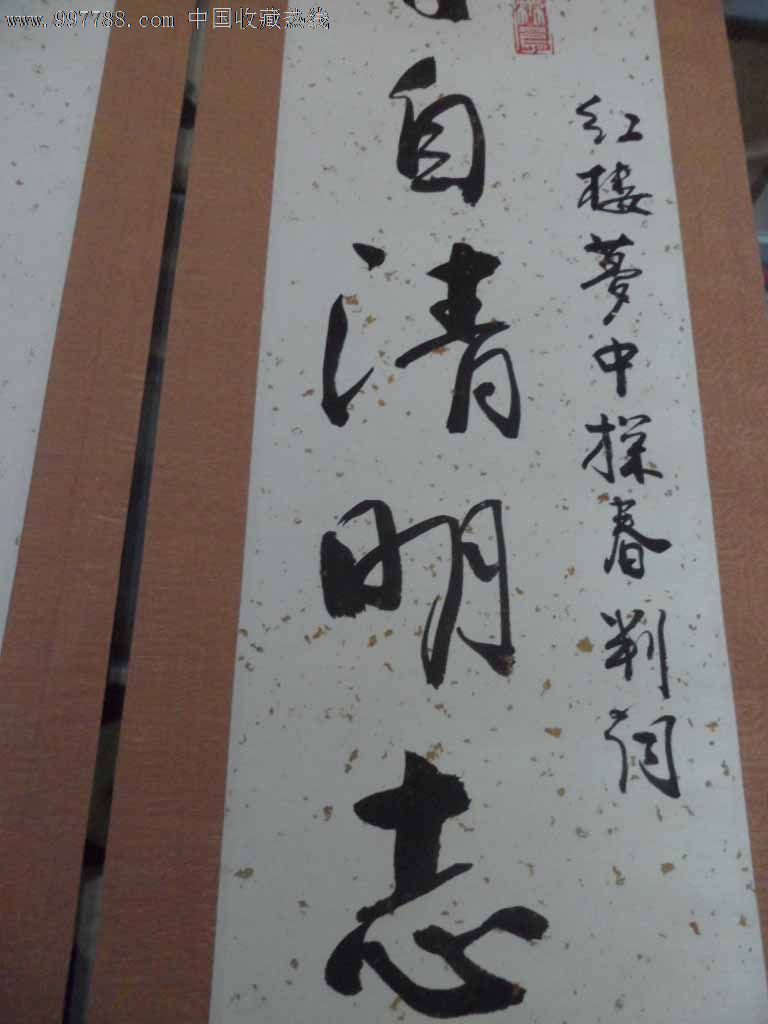 www.997788.com 中国收藏热线
红楼夢中探春判词
自清明志